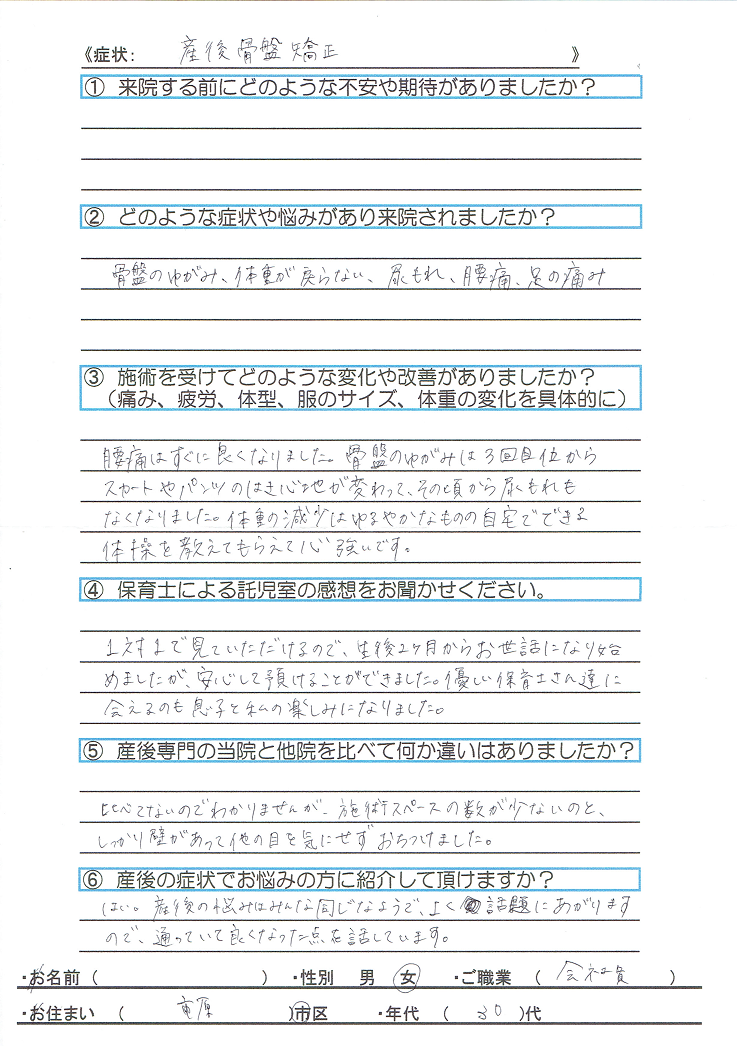 《症状: 産後骨盤矯正 》
① 来院する前にどのような不安や期待がありましたか？
② どのような症状や悩みがあり来院されましたか？
骨盤のゆがみ、体重が戻らない、尿もれ、腰痛、足の痛み
③ 施術を受けてどのような変化や改善がありましたか？
（痛み、疲労、体型、服のサイズ、体重の変化を具体的に）
腰痛はすぐに良くなりました。骨盤のゆがみは3回目位から
スカートやパンツのはき心地が変わって、その頃から尿もれも
なくなりました。体重の減少はゆるやかなものの自宅でできる
体操を教えてもらえて心強いです。
④ 保育士による託児室の感想をお聞かせください。
1対1で見ていただけるので、生後2ヶ月からお世話になり始
めましたが、安心して預けることができました。優しい保育士さん達に
会えるのも息子と私の楽しみになりました。
⑤ 産後専門の当院と他院を比べて何か違いはありましたか？
比べてないのでわかりませんが、施術スペースの数が少ないのと、
しっかり壁があって他の目を気にせずおちつけました。
⑥ 産後の症状でお悩みの方に紹介して頂けますか？
はい。産後の悩みはみんな同じなようで、よく話題にあがります
ので、通っていて良くなった点を話しています。
・お名前（ ） ・性別 男 女 ・ご職業 （ 会社員 ）
・お住まい （ ）市区 ・年代 （ 30 ）代